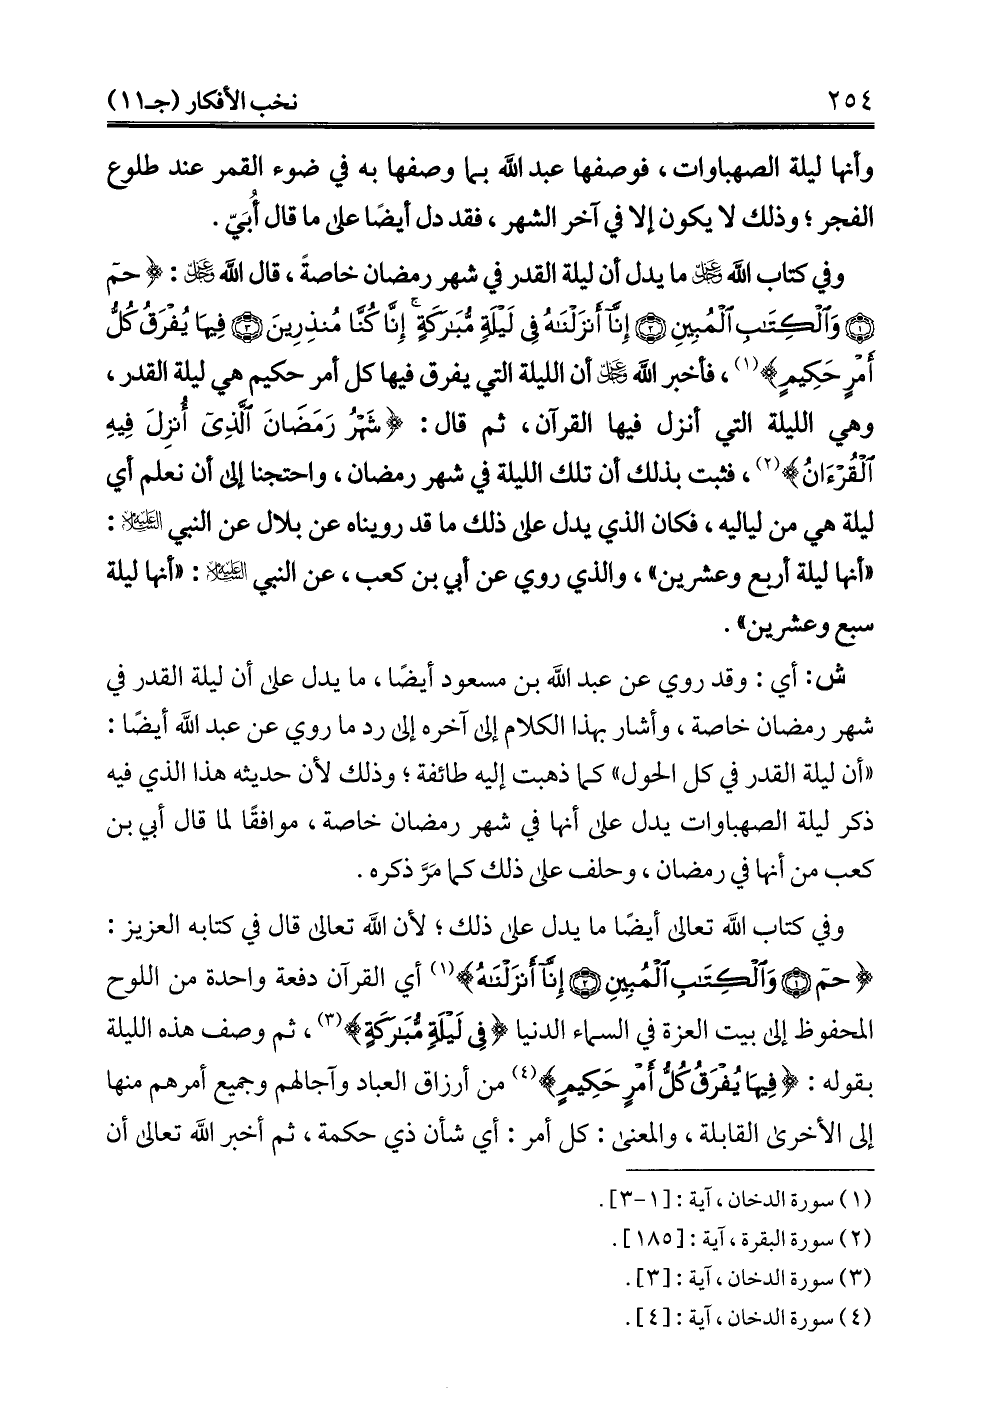 ٢٥٤ نخب الأفكار (جـ١١)
وأنها ليلة الصهباوات ، فوصفها عبد الله بما وصفها به في ضوء القمر عند طلوع
الفجر ؛ وذلك لا يكون إلا في آخر الشهر ، فقد دل أيضًا على ما قال أُبَيّ .
وفي كتاب الله ﷿ ما يدل أن ليلة القدر في شهر رمضان خاصةً ، قال الله ﷿ : ﴿حمٓ
۝١ وَٱلْكِتَٰبِ ٱلْمُبِينِ ۝٢ إِنَّآ أَنزَلْنَٰهُ فِى لَيْلَةٍ مُّبَٰرَكَةٍ ۚ إِنَّا كُنَّا مُنذِرِينَ ۝٣ فِيهَا يُفْرَقُ كُلُّ
أَمْرٍ حَكِيمٍ﴾(١) ، فأخبر الله ﷿ أن الليلة التي يفرق فيها كل أمر حكيم هي ليلة القدر ،
وهي الليلة التي أنزل فيها القرآن، ثم قال : ﴿شَهْرُ رَمَضَانَ ٱلَّذِىٓ أُنزِلَ فِيهِ
ٱلْقُرْءَانُ﴾(٢) ، فثبت بذلك أن تلك الليلة في شهر رمضان ، واحتجنا إلى أن نعلم أي
ليلة هي من لياليه ، فكان الذي يدل على ذلك ما قد رويناه عن بلال عن النبي العَلَيْهِ السلام :
«أنها ليلة أربع وعشرين» ، والذي روي عن أبي بن كعب ، عن النبي العَلَيْهِ السلام : «أنها ليلة
سبع وعشرين» .
ش: أي : وقد روي عن عبد الله بن مسعود أيضًا ، ما يدل على أن ليلة القدر في
شهر رمضان خاصة ، وأشار بهذا الكلام إلى آخره إلى رد ما روي عن عبد الله أيضًا :
«أن ليلة القدر في كل الحول» كما ذهبت إليه طائفة ؛ وذلك لأن حديثه هذا الذي فيه
ذكر ليلة الصهباوات يدل على أنها في شهر رمضان خاصة ، موافقًا لما قال أبي بن
كعب من أنها في رمضان ، وحلف على ذلك كما مَرَّ ذكره .
وفي كتاب الله تعالى أيضًا ما يدل على ذلك ؛ لأن الله تعالى قال في كتابه العزيز :
﴿حمٓ ۝١ وَٱلْكِتَٰبِ ٱلْمُبِينِ ۝٢ إِنَّآ أَنزَلْنَٰهُ﴾(١) أي القرآن دفعة واحدة من اللوح
المحفوظ إلى بيت العزة في السماء الدنيا ﴿فِى لَيْلَةٍ مُّبَٰرَكَةٍ﴾(٣) ، ثم وصف هذه الليلة
بقوله : ﴿فِيهَا يُفْرَقُ كُلُّ أَمْرٍ حَكِيمٍ﴾(٤) من أرزاق العباد وآجالهم وجميع أمرهم منها
إلى الأخرى القابلة ، والمعنى : كل أمر : أي شأن ذي حكمة ، ثم أخبر الله تعالى أن
(١) سورة الدخان ، آية : [١-٣] .
(٢) سورة البقرة ، آية : [١٨٥] .
(٣) سورة الدخان ، آية : [٣] .
(٤) سورة الدخان ، آية : [٤] .